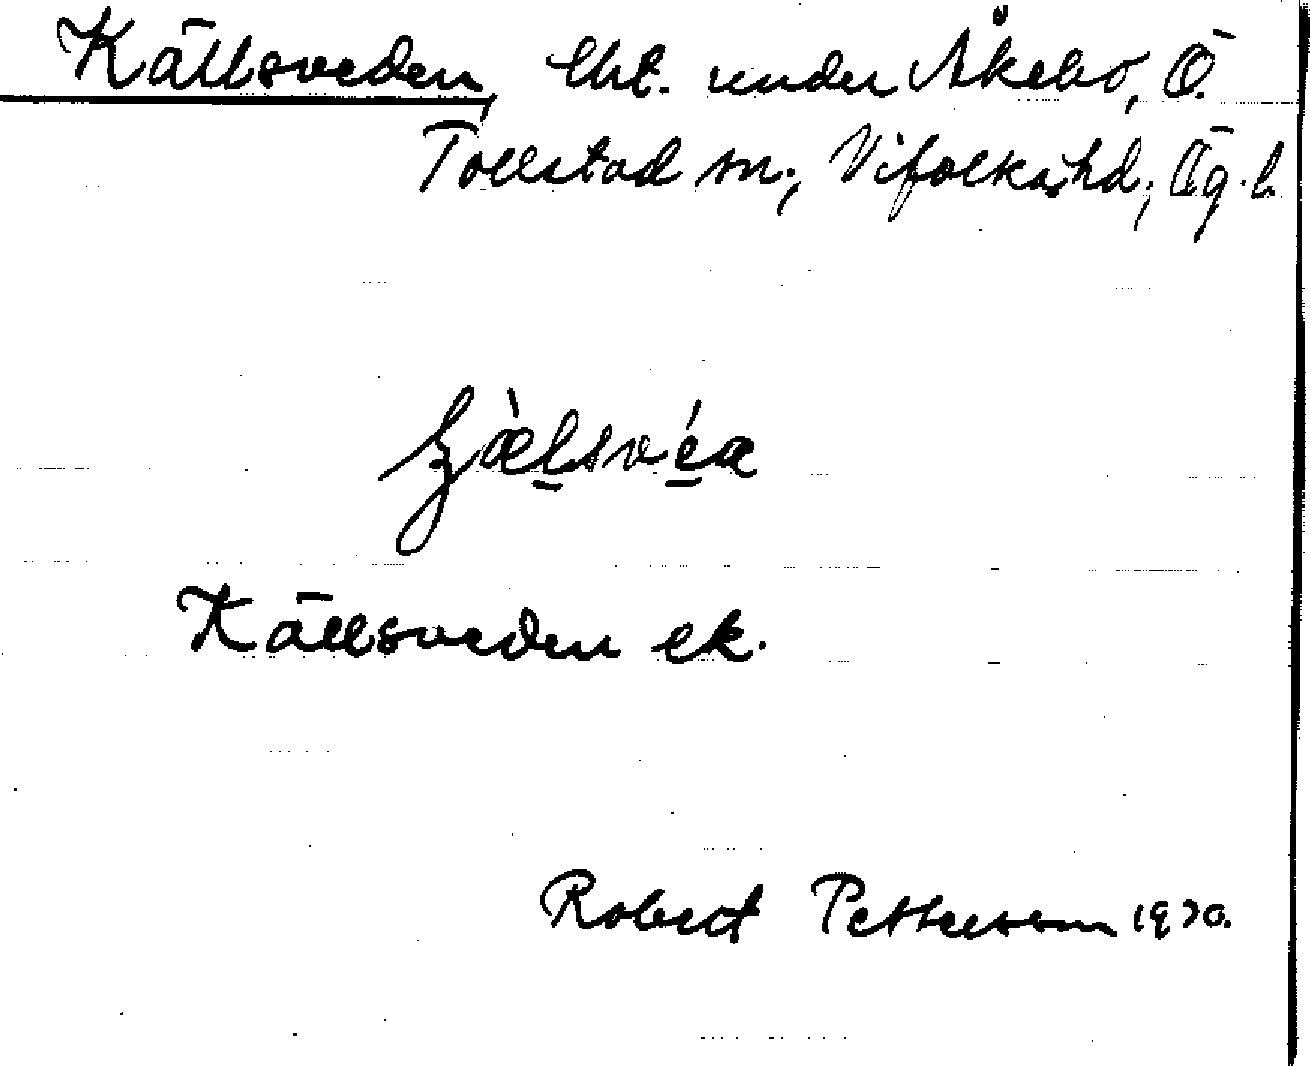 Källsveden, lht. under Åkebo, Ö.
Tollstad sn., Vifolka hd, Ög. l.
Källsveden ek.
Robert Pettersson 1930.